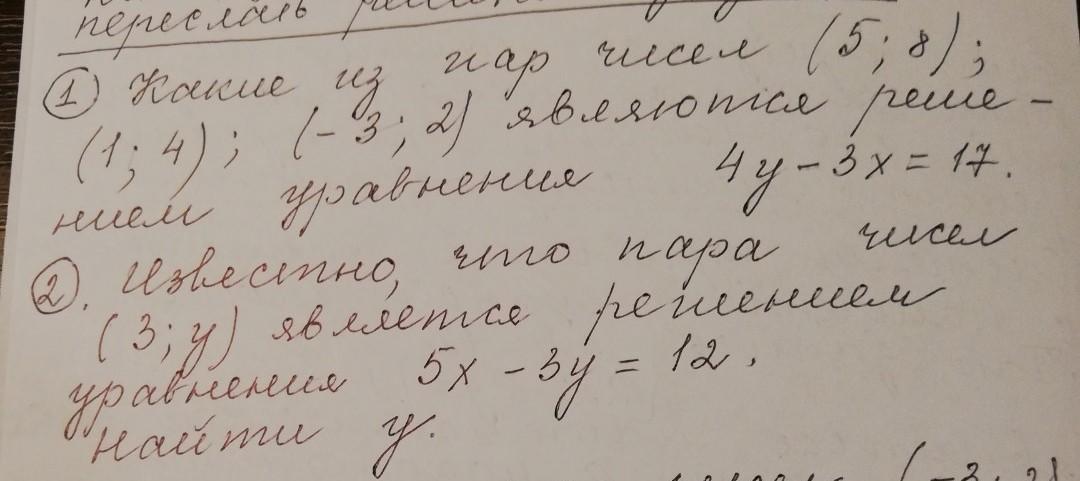 переслать
① Какие из пар чисел (5; 8);
(1; 4); (-3; 2) являются реше-
нием уравнения 4y - 3x = 17.
②. Известно, что пара чисел
(3; y) является решением
уравнения 5x - 3y = 12.
найти y.
(-3; 2)